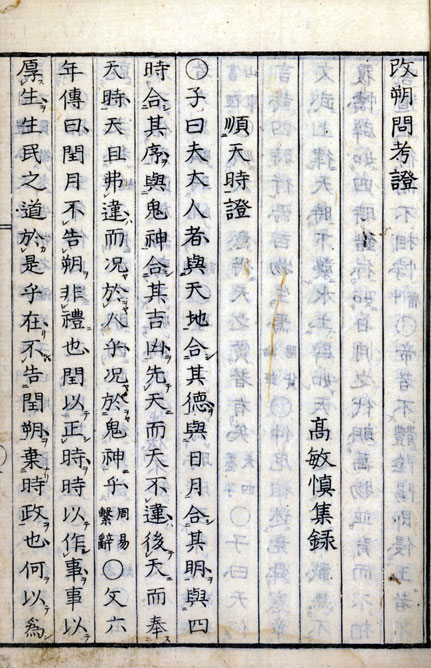 改朔問考證
高敏慎集録
順天時證
〇子曰夫大人者與天地合其德與日月合其明與四
時合其序與鬼神合其吉凶先天而天不違後天而奉
天時天且弗違而况於人乎况於鬼神乎周易繫辭〇文六
年傳曰閏月不告朔非禮也閏以正時時以作事事以
厚生生民之道於是乎在不告閏朔棄時政也何以為